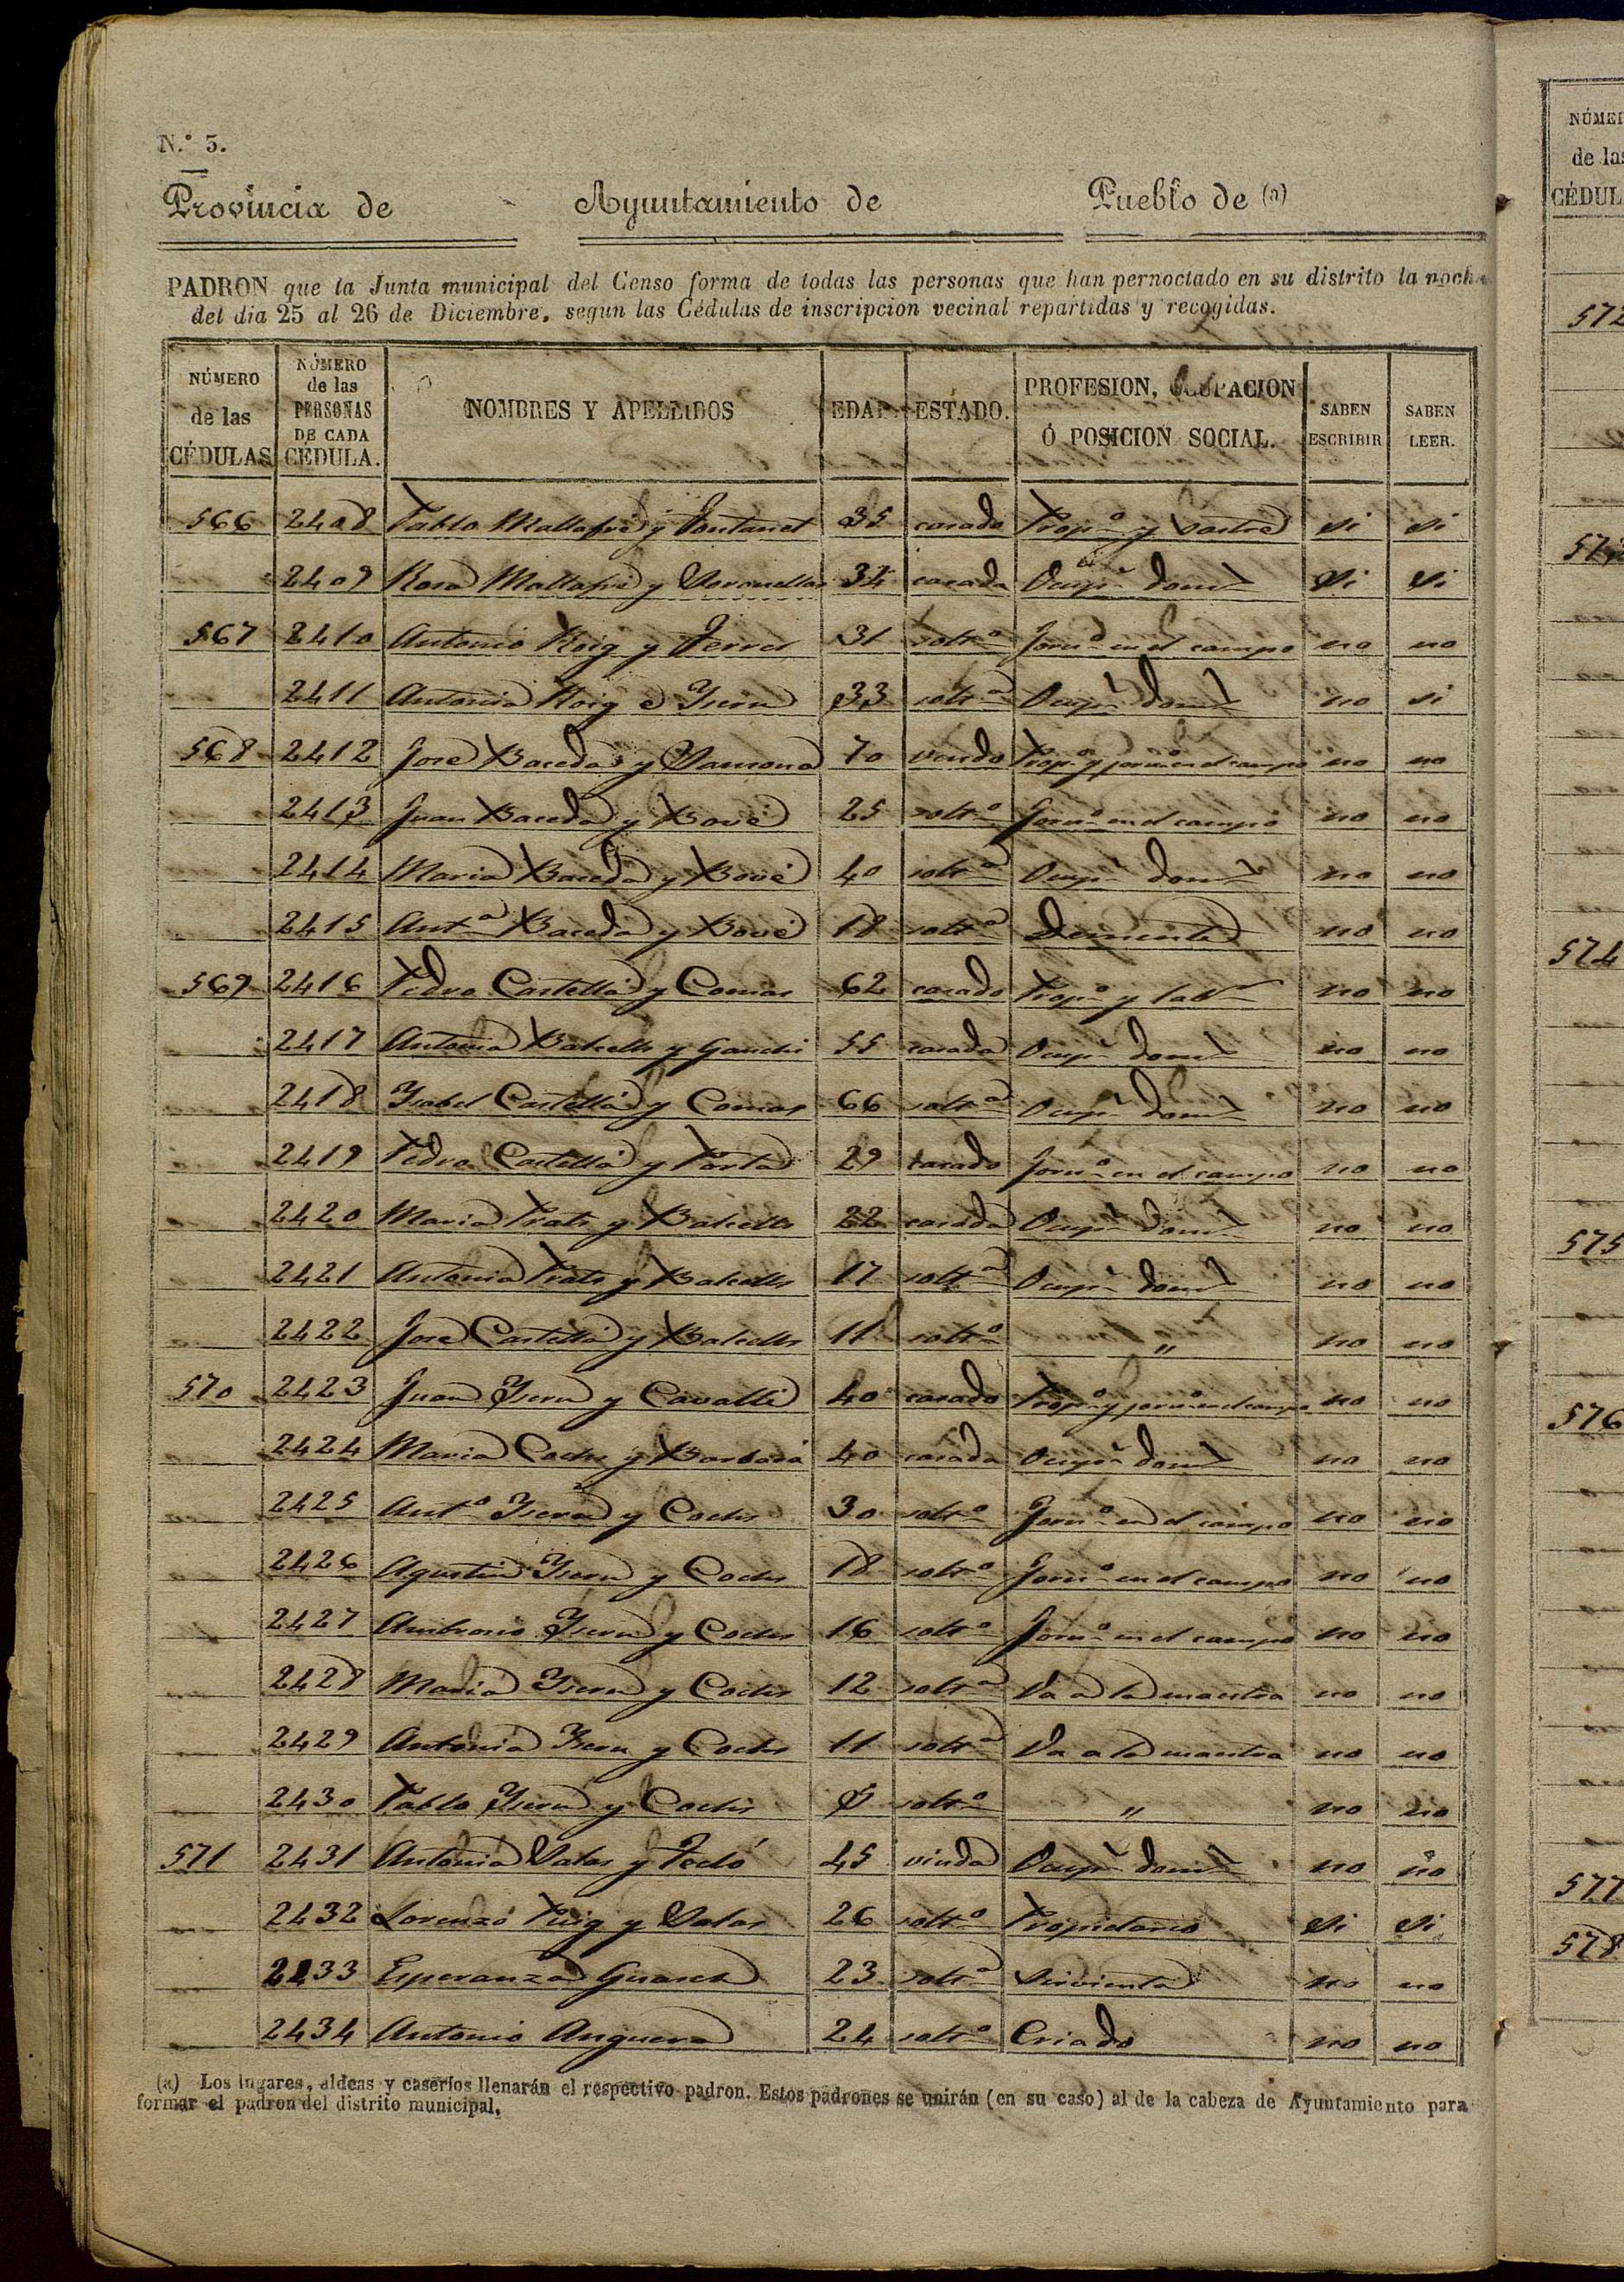 N.º 3.
Provincia de Ayuntamiento de Pueblo de (a)
PADRON que la Junta municipal del Censo forma de todas las personas que han pernoctado en su distrito la noche
del dia 25 al 26 de Diciembre, segun las Cédulas de inscripcion vecinal repartidas y recogidas.
NÚMERO de las CÉDULAS NÚMERO de las PERSONAS DE CADA CÉDULA. NOMBRES Y APELLIDOS EDAD ESTADO. PROFESION, OCUPACION Ó POSICION SOCIAL. SABEN ESCRIBIR SABEN LEER.
566 2408 Pablo Mallafré y Fontanet 35 casado Propº y Sastre si si
2409 Rosa Mallafré y 34 casada Ocupn domt si si
567 2410 Antonio Roig y Ferrer 31 soltº Jornº en el campo no no
2411 Antonia Roig é Ysern 33 soltª Ocupn domt no si
568 2412 José Baceda y 70 viudo Propº y jornº en el campo no no
2413 Juan Baceda y Bové 25 soltº Jornº en el campo no no
2414 Maria Baceda y Bové 40 soltª Ocupn domt no no
2415 Antª Baceda y Bové 18 soltª Demente no no
569 2416 Pedro Castellá y Comas 62 casado Propº y labr no no
2417 Antonia Balcells y 55 casada Ocupn domt no no
2418 Ysabel Castellá y Comas 66 soltª Ocupn domt no no
2419 Pedro Castellá y Porta 29 casado Jornº en el campo no no
2420 Maria Prats y Balcells 22 casada Ocupn domt no no
2421 Antonia Prats y Balcells 17 soltª Ocupn domt no no
2422 José Castellá y Balcells 11 soltº " no no
570 2423 Juan Ysern y Cavallé 40 casado Propº y jornº en el campo no no
2424 Maria Cochs y Barbará 40 casada Ocupn domt no no
2425 Antº Ysern y Cochs 30 soltº Jornº en el campo no no
2426 Agustin Ysern y Cochs 18 soltº Jornº en el campo no no
2427 Ambrosio Ysern y Cochs 16 soltº Jornº en el campo no no
2428 Maria Ysern y Cochs 12 soltª Va a la maestra no no
2429 Antonia Ysern y Cochs 11 soltª Va a la maestra no no
2430 Pablo Ysern y Cochs soltº " no no
571 2431 Antonia Salas y 45 viuda Ocupn domt no no
2432 Lorenzo Puig y Salas 26 soltº Propietario si si
2433 Esperanza Guasch 23 soltª Sirvienta no no
2434 Antonio Anguera 24 soltº Criado no no
(a) Los lugares, aldeas y caseríos llenarán el respectivo padron. Estos padrones se unirán (en su caso) al de la cabeza de Ayuntamiento para
formar el padron del distrito municipal.
NÚMER
de las
CÉDUL
572
574
575
576
577
578